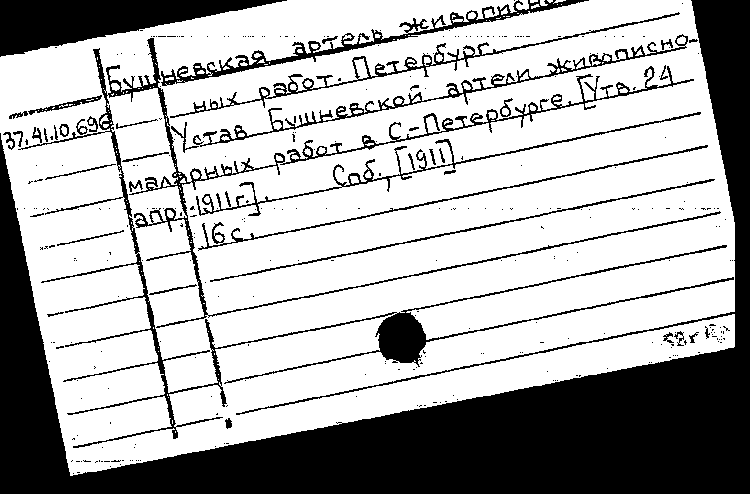 Бушневская артель живописно-
ных работ. Петербург.
37.41.10.696.
Устав Бушневской артели живописно-
малярных работ в С.-Петербурге. [Утв. 24
апр. 1911г.]. Спб., [1911].
16 с.